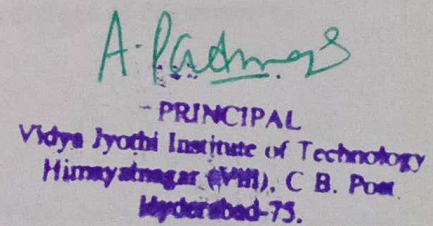 A. Padmaja
PRINCIPAL
Vidya Jyothi Institute of Technology
Himayatnagar (Vill), C B. Post
Hyderabad-75.